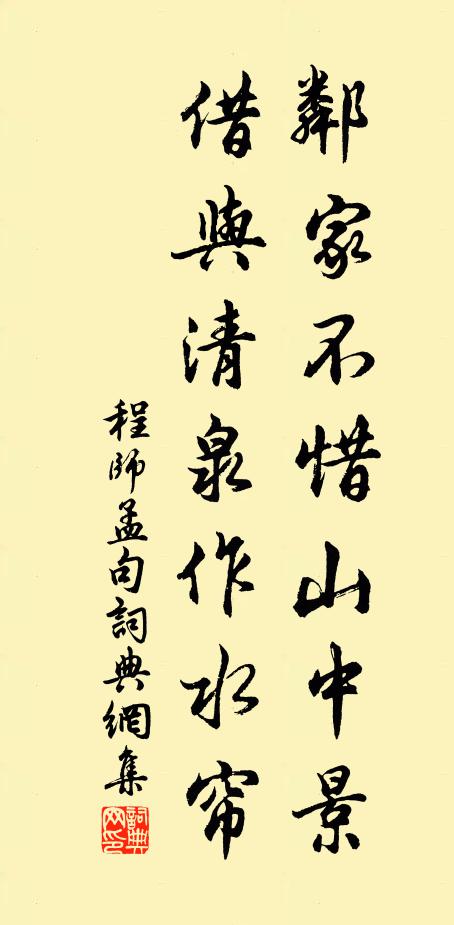 鄰家不惜山中景
借與清泉作水帘
程師孟句詞典網集
詞典网印